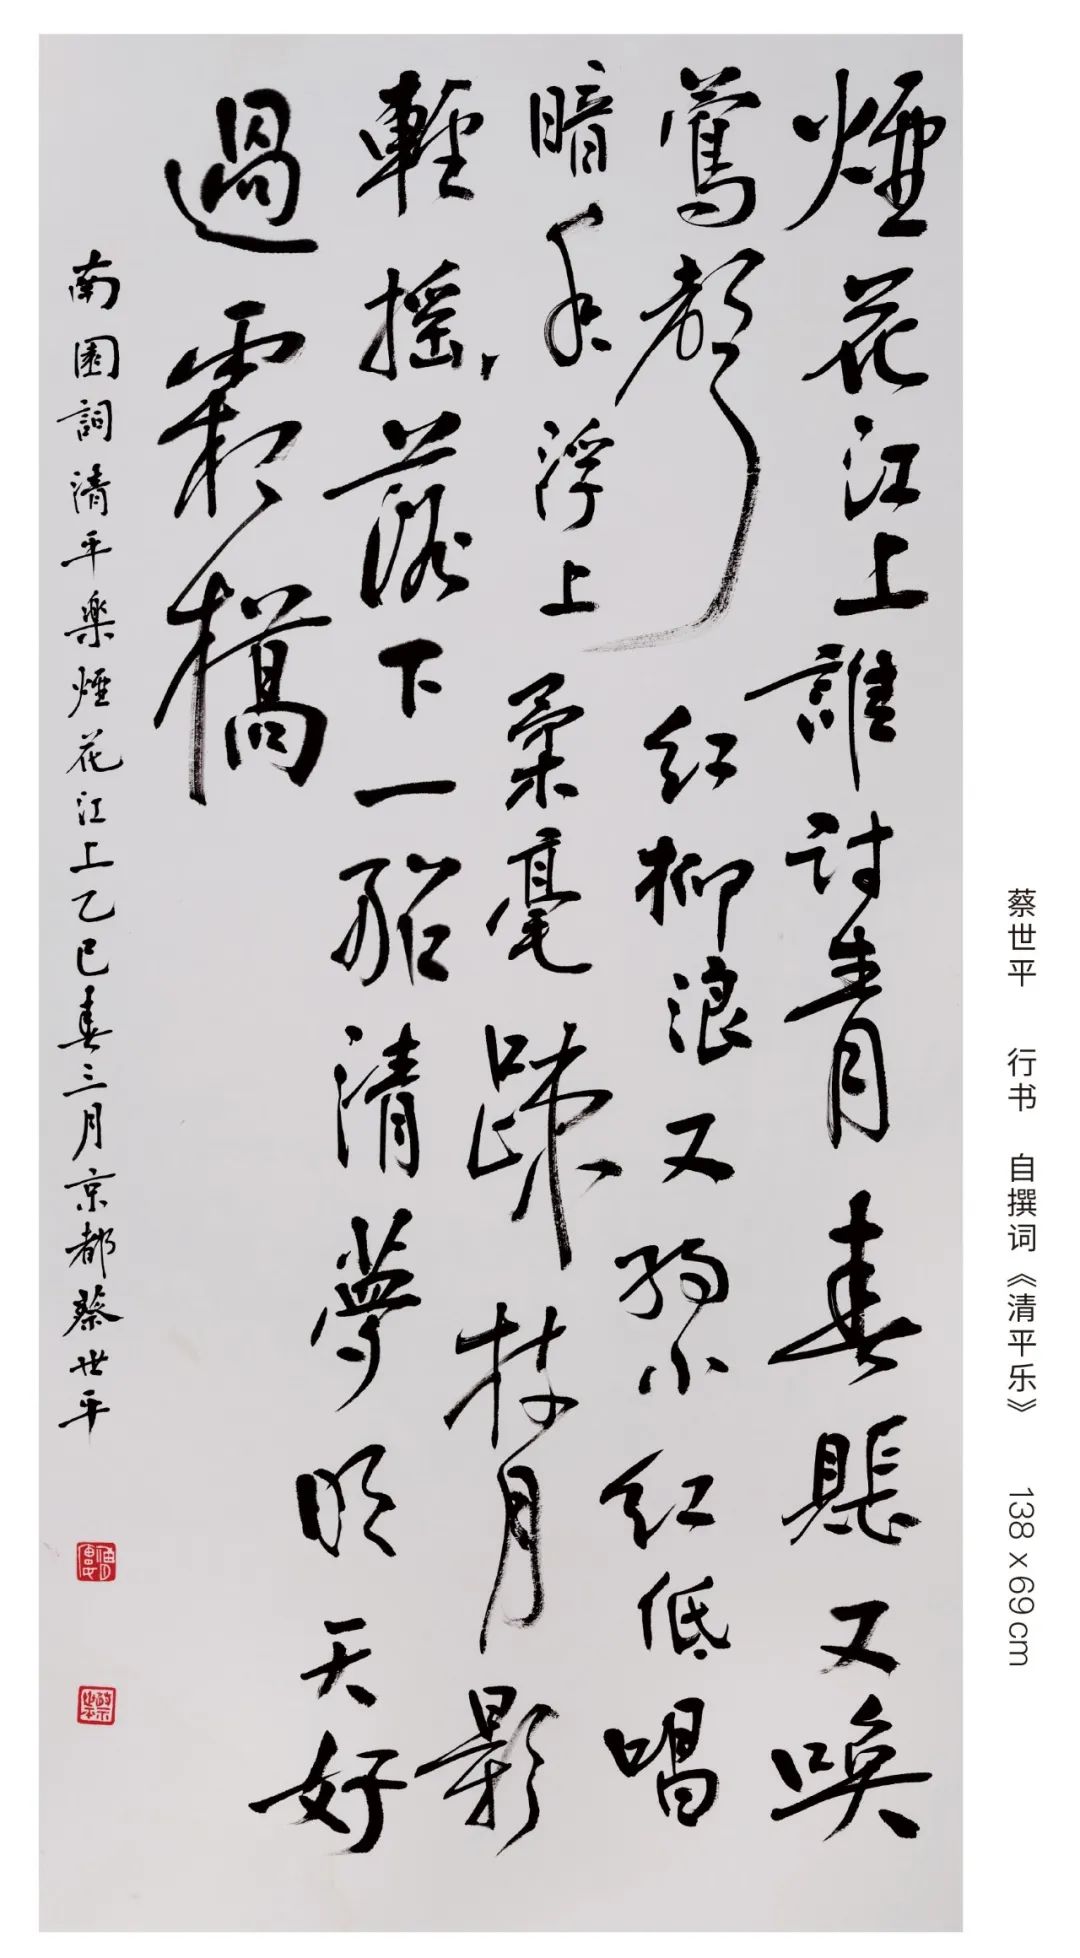 煙花江上誰討青春賬又喚
鶯聲紅柳浪又約小紅低唱
暗香浮上柔毫踈枝月影
輕搖落下一船清夢明天好
過霜橋
南園詞清平楽煙花江上乙巳春三月京都蔡世平
蔡世平 行书 自撰词《清平乐》 138x69cm